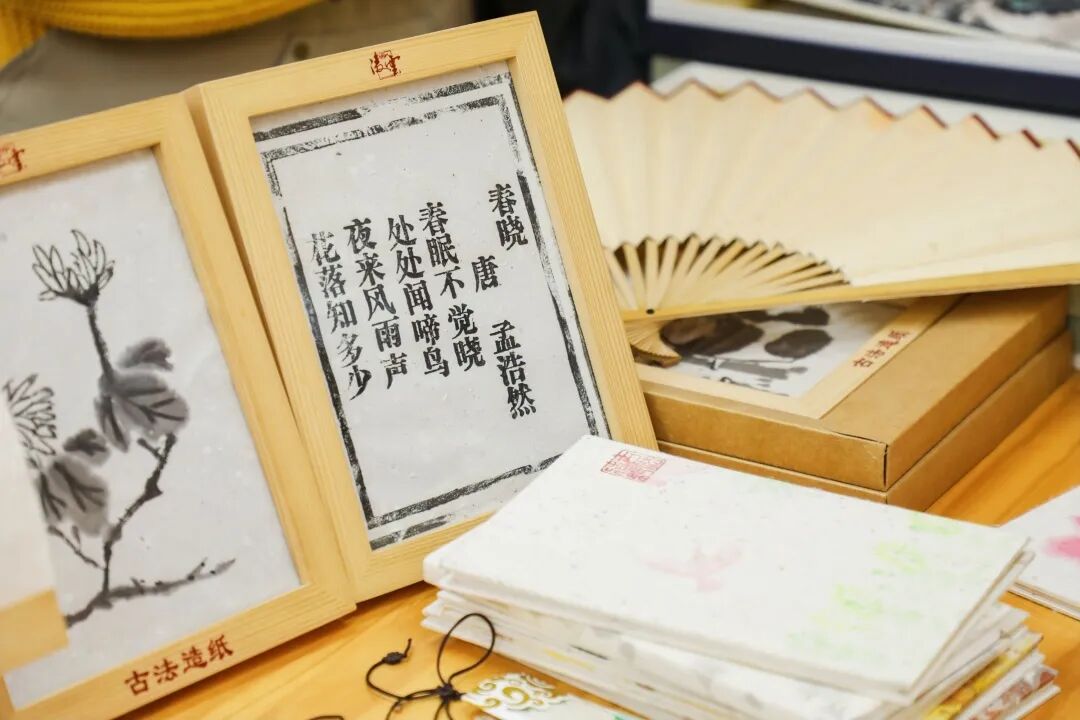 春晓
唐 孟浩然
春眠不觉晓
处处闻啼鸟
夜来风雨声
花落知多少
古法造纸
古法造纸